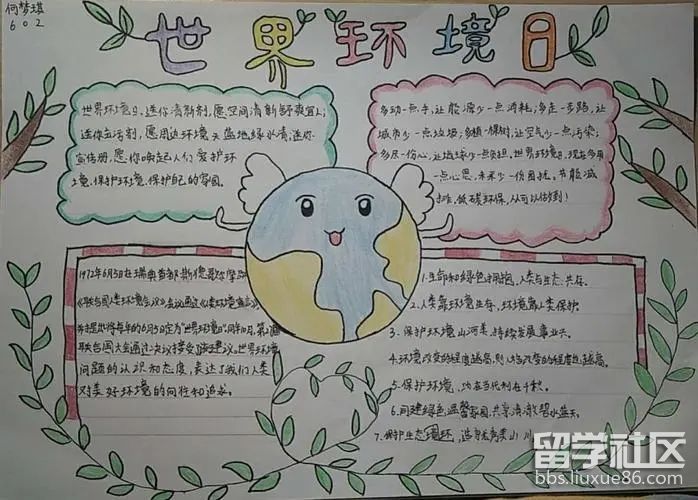 何梦琪
602
世界环境日
世界环境日,送你清新剂,愿空间清新舒爽宜人;
送你立活剂,愿周边环境天蓝地绿水清;送你
宣传册,愿你唤起人们爱护环
境.保护环境.保护自己的家园.
多动一点手,让能源少一点消耗;多走一步路,让
城市少一点垃圾;多植一棵树,让空气少一点污染;
多尽一份心,让地球少一点负担.世界环境日,现在多用
一点心思,未来少一份困扰。节能减
排,低碳环保,从可以做到!
1972年6月5日在瑞典首都斯德哥尔摩
《联合国人类环境会议》会议通过《人类环境宣言》,
并提出将每年的6月5日定为"世界环境日".同年10月,第27届
联合国大会通过决议接受建议。世界环境
问题的认识和态度,表达了我们人类
对美好环境的向往和追求。
1.生命和绿色拥抱,人类与生态共存.
2.人类靠环境生存,环境靠人类保护。
3.保护环境山河美,持续发展事业兴.
4.环境改变的程度越高,则人均改变的程度也越高。
5.保护环境,功在当代利在千秋.
6.同建绿色温馨家园,共享清澈碧水蓝天.
7.保护生态环环,造
留学社区
bbs.liuxue86.com